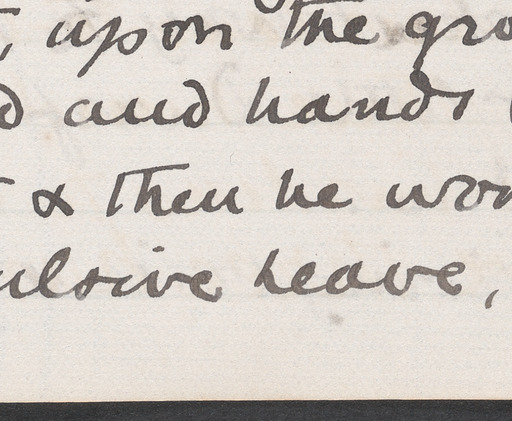 , upon the gro
d and hands
& then he wou
ulsive heave,